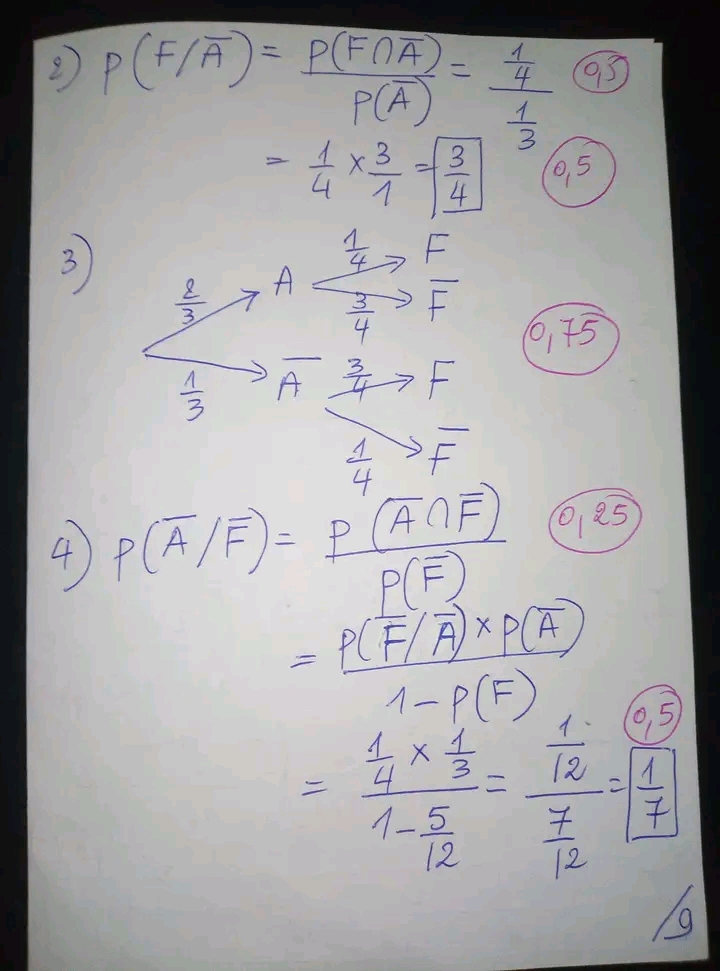 2) P(F/A̅) = P(F∩A̅)/P(A̅) = (1/4)/(1/3) 0,5
= 1/4 × 3/1 = 3/4 0,5
3)
2/3 A 1/4 F
3/4 F̅
0,75
1/3 A̅ 3/4 F
1/4 F̅
4) P(A̅/F̅) = P(A̅∩F̅)/P(F̅) 0,25
= P(F̅/A̅) × P(A̅)/1 - P(F)
= (1/4 × 1/3)/(1 - 5/12) = (1/12)/(7/12) = 1/7 0,5
/9